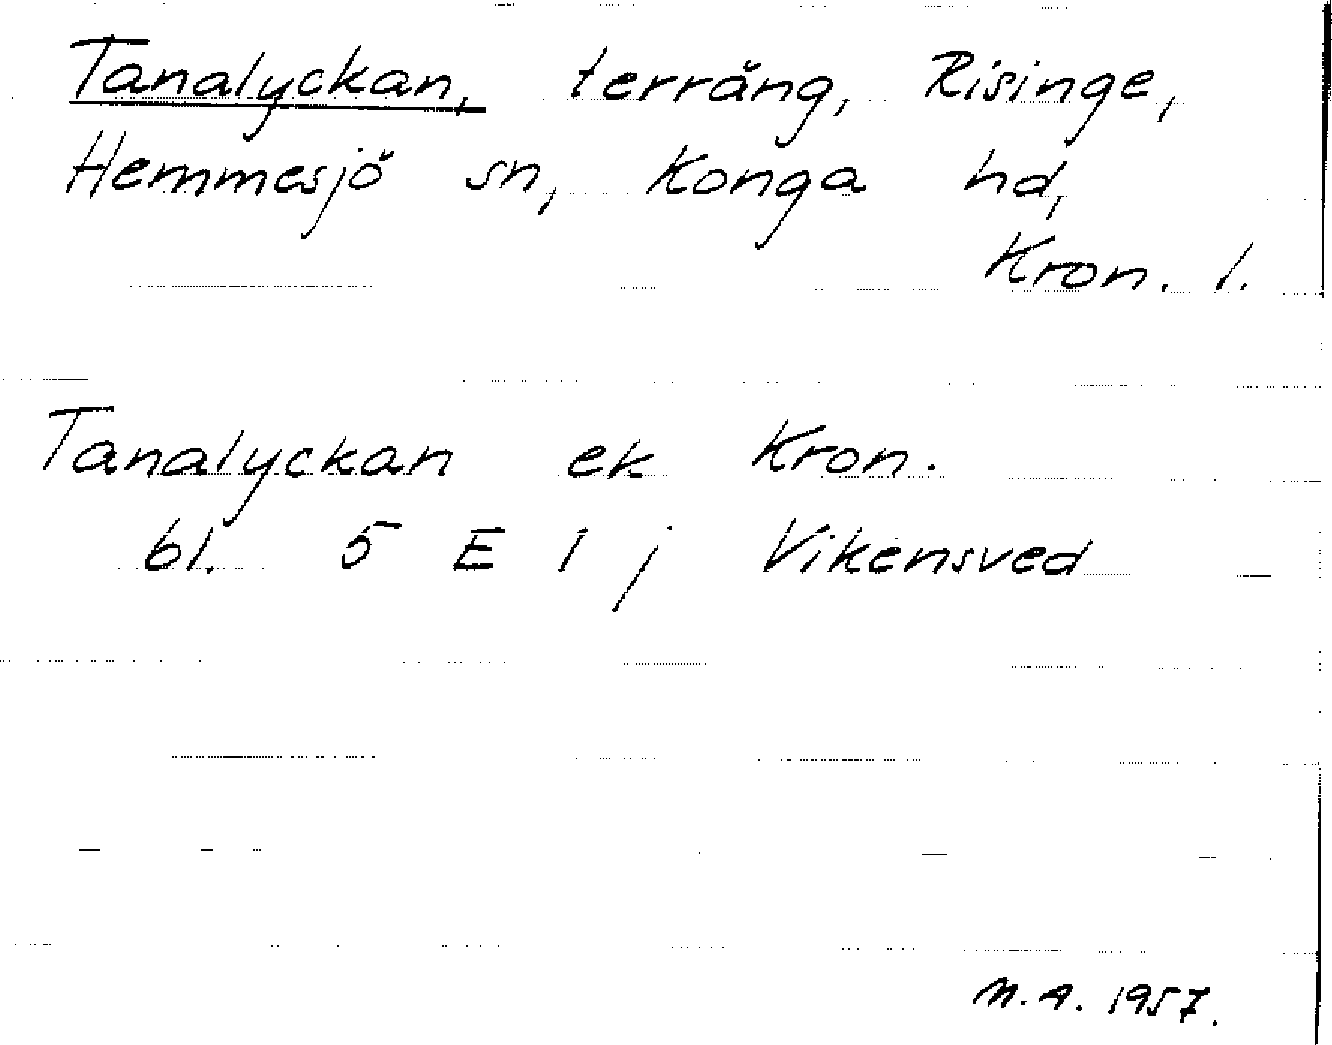 Tanalyckan, terräng, Risinge,
Hemmesjö sn, Konga hd,
Kron. l.
Tanalyckan ek Kron.
bl. 5 E 1 j Vikensved
M.A. 1957.